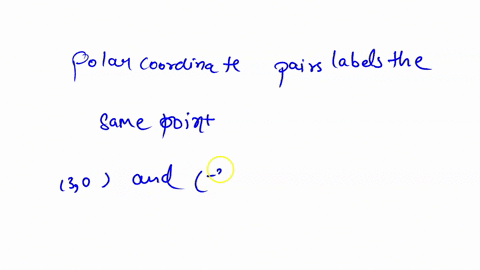 Polar coordinate pairs labels the
same point
(3,0) and (-